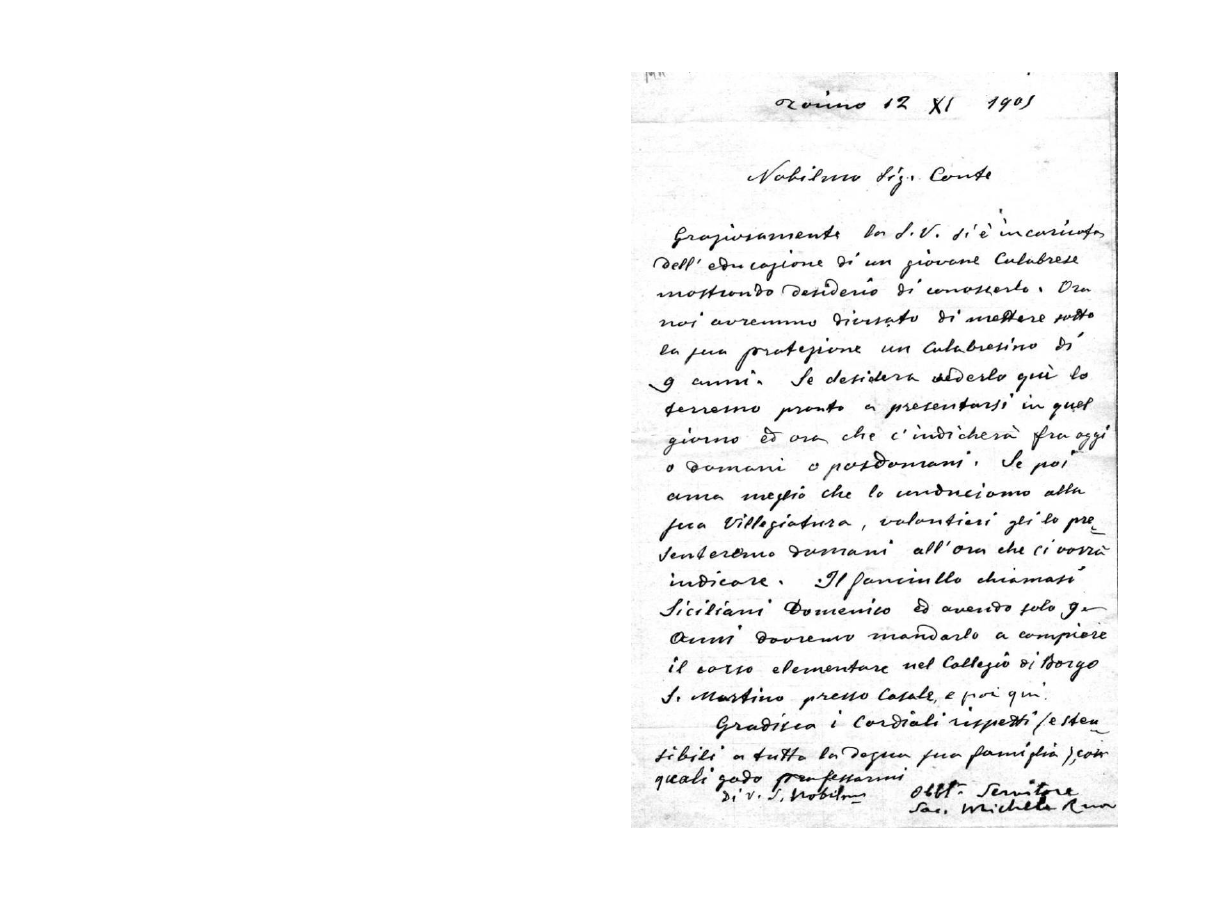 Torino 12 XI 1905
Nobilmo Sig. Conte
Graziosamente la S.V. si è incaricata
dell' educazione di un giovane Calabrese
mostrando desiderio di conoscerlo. Ora
noi avremmo divisato di mettere sotto
la sua protezione un Calabresino di
9 anni. Se desidera vederlo qui lo
terremo pronto a presentarsi in quel
giorno ed ora che c'indicherà fra oggi
o domani o posdomani. Se poi
ama meglio che lo conduciamo alla
sua Villegiatura, volontieri gli lo pre-
senteremo domani all'ora che ci vorrà
indicare. Il fanciullo chiamasi
Siciliani Domenico ed avendo solo 9
Anni dovremo mandarlo a compiere
il corso elementare nel Collegio di Borgo
S. Martino presso Casale, e poi qui.
Gradisca i cordiali rispetti (esten-
sibili a tutta la degna sua famiglia) con
quali godo professarmi
Di V. S. Nobilma Obbl. Servitore
Sac. Michele Rua